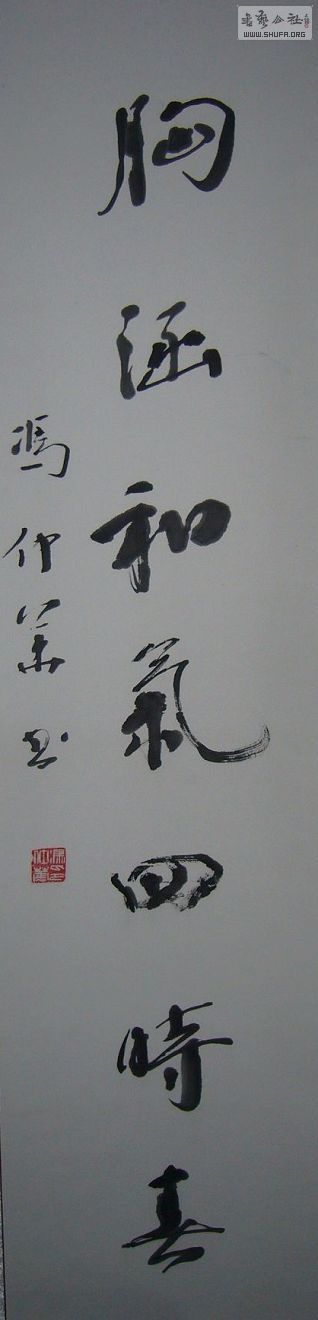 胸涵和氣四時春
馮仲華书
書藝公社
WWW.SHUFA.ORG